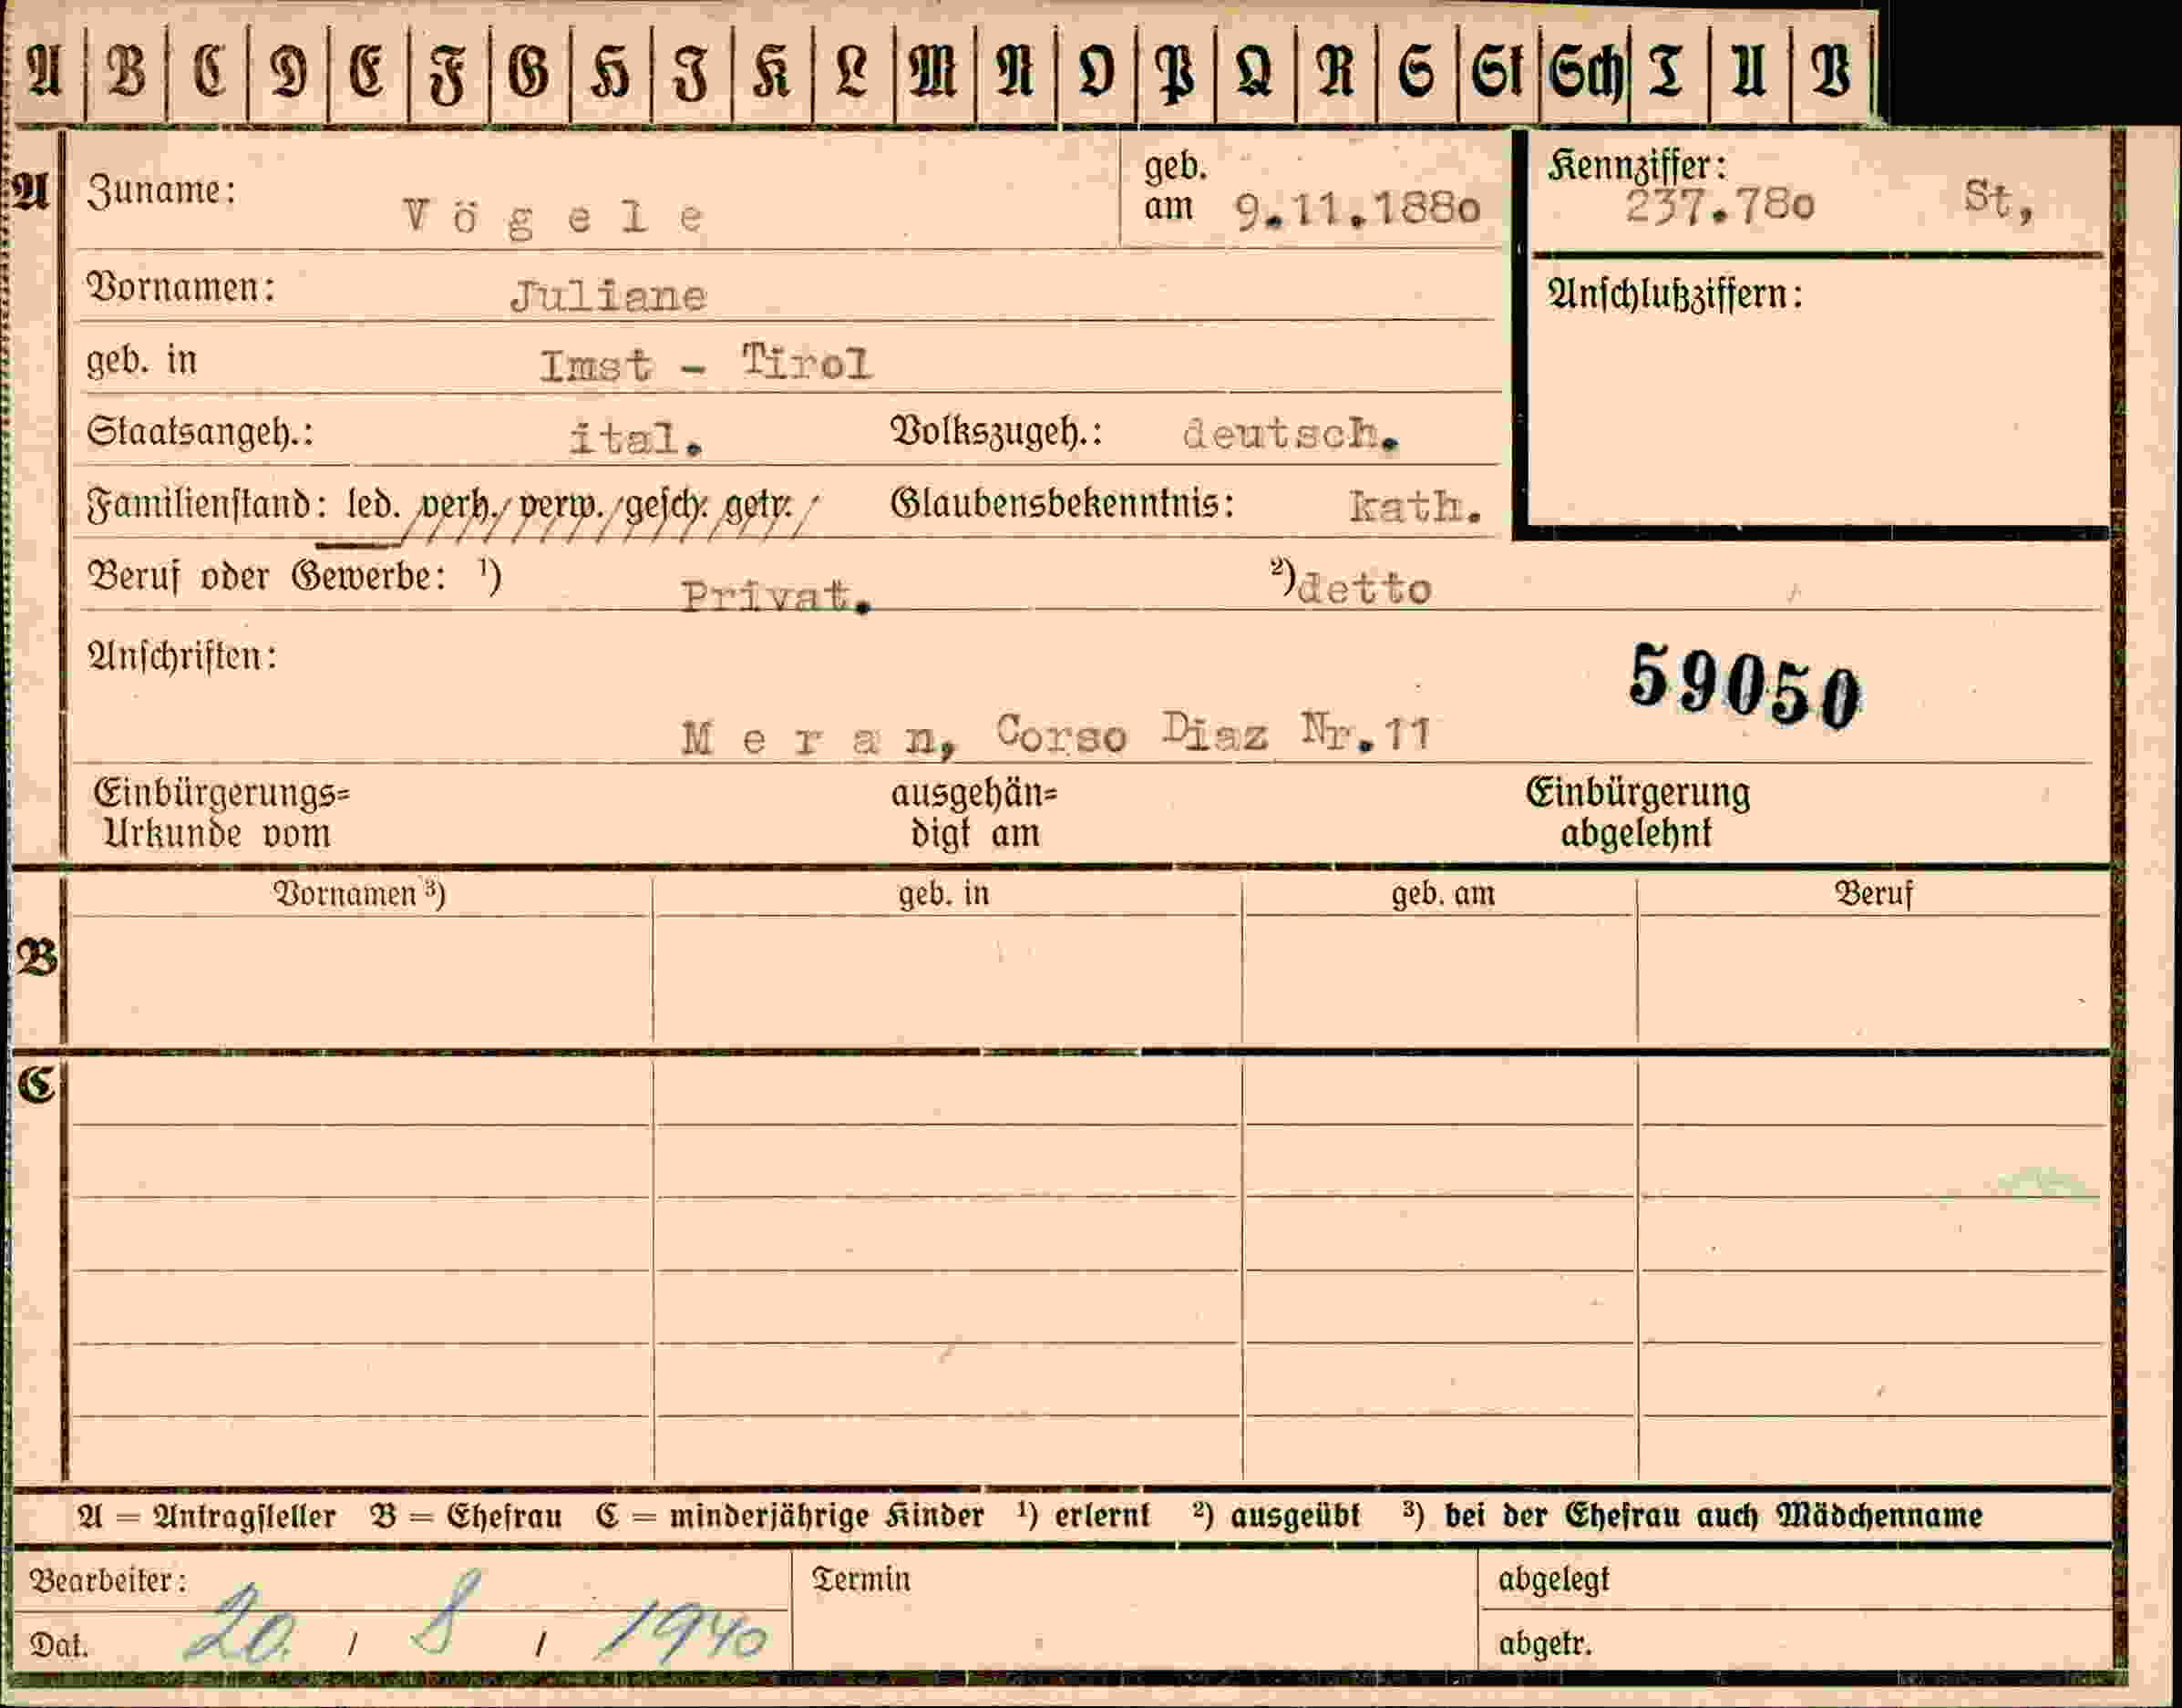 A B C D E F G H J K L M N O P Q R S St Sch T U V
A Zuname: Vögele geb. am 9.11.1880 Kennziffer: 237.780 St,
Vornamen: Juliane Anschlußziffern:
geb. in Imst - Tirol
Staatsangeh.: ital. Volkszugeh.: deutsch.
Familienstand: led. verh. verw. gesch. getr. Glaubensbekenntnis: kath.
Beruf oder Gewerbe: ¹) Privat. ²) detto
Anschriften: 59050
Meran, Corso Diaz Nr.11
Einbürgerungs= ausgehän= Einbürgerung
Urkunde vom digt am abgelehnt
Vornamen ³) geb. in geb. am Beruf
B
C
A = Antragsteller B = Ehefrau C = minderjährige Kinder ¹) erlernt ²) ausgeübt ³) bei der Ehefrau auch Mädchenname
Bearbeiter: Termin abgelegt
Dat. 20. / 8 / 1940 abgetr.